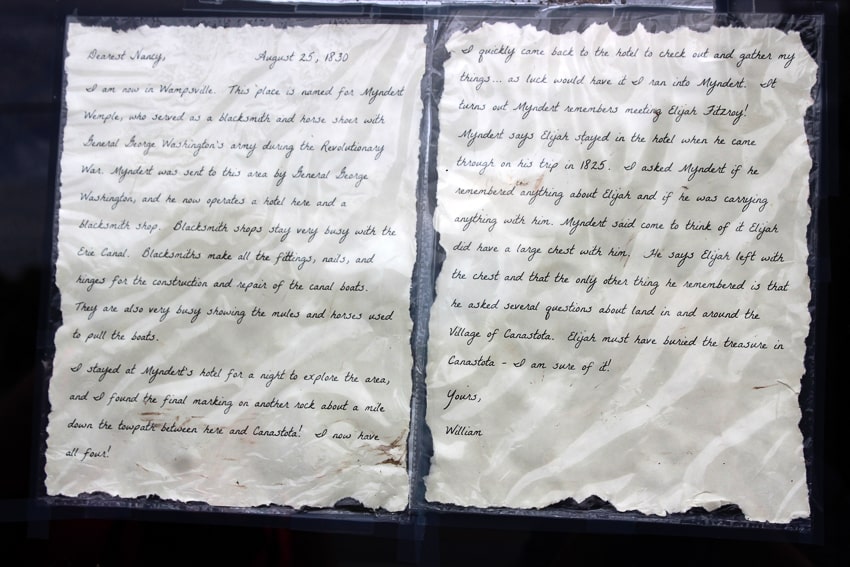 Dearest Nancy, August 25, 1830
I am now in Wampsville. This place is named for Myndert
Wemple, who served as a blacksmith and horse shoer with
General George Washington's army during the Revolutionary
War. Myndert was sent to this area by General George
Washington, and he now operates a hotel here and a
blacksmith shop. Blacksmith shops stay very busy with the
Erie Canal. Blacksmiths make all the fittings, nails, and
hinges for the construction and repair of the canal boats.
They are also very busy showing the mules and horses used
to pull the boats.
I stayed at Myndert's hotel for a night to explore the area,
and I found the final marking on another rock about a mile
down the towpath between here and Canastota! I now have
all four!
I quickly came back to the hotel to check out and gather my
things... as luck would have it I ran into Myndert. It
turns out Myndert remembers meeting Elijah Fitzroy!
Myndert says Elijah stayed in the hotel when he came
through on his trip in 1825. I asked Myndert if he
remembered anything about Elijah and if he was carrying
anything with him. Myndert said come to think of it Elijah
did have a large chest with him. He says Elijah left with
the chest and that the only other thing he remembered is that
he asked several questions about land in and around the
Village of Canastota. Elijah must have buried the treasure in
Canastota - I am sure of it!
Yours,
William